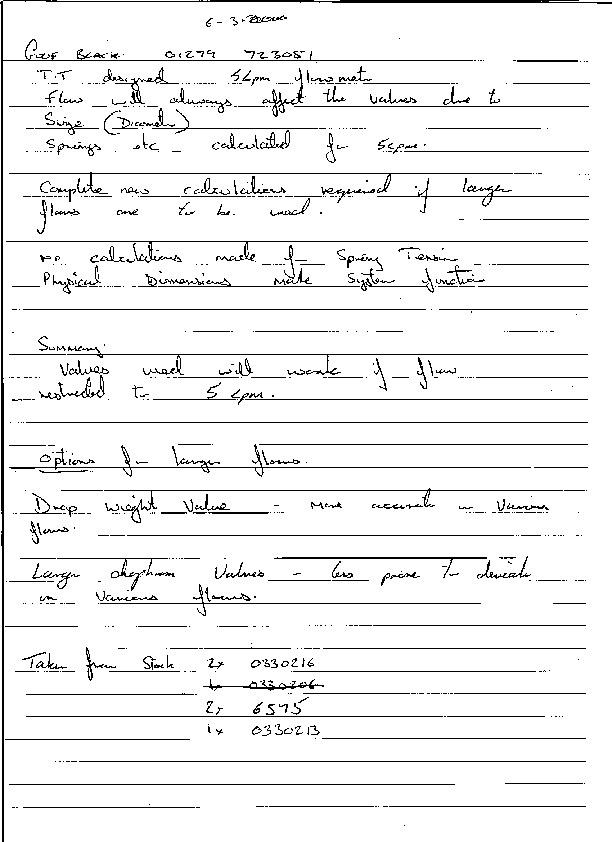 6-3-2000
BLACK. 01279 723051
T.T designed 5Lpm flowmeter
Flow will always affect the values due to
Swige (Diameter)
Springs etc - calculated for 5Lpm.
Complete new calculations required if larger
flows are to be used.
no calculations made for Spring Tension
Physical Dimensions make System function
Summary.
Values used will work if flow
restricted to 5 Lpm.
Options for larger flows.
Drop Weight Value - More accurate in Various
flows.
Larger Values - less prone to deviate
in Various flows.
Taken from Stock 2x 0330216
0330206
2x 6575
1x 0330213